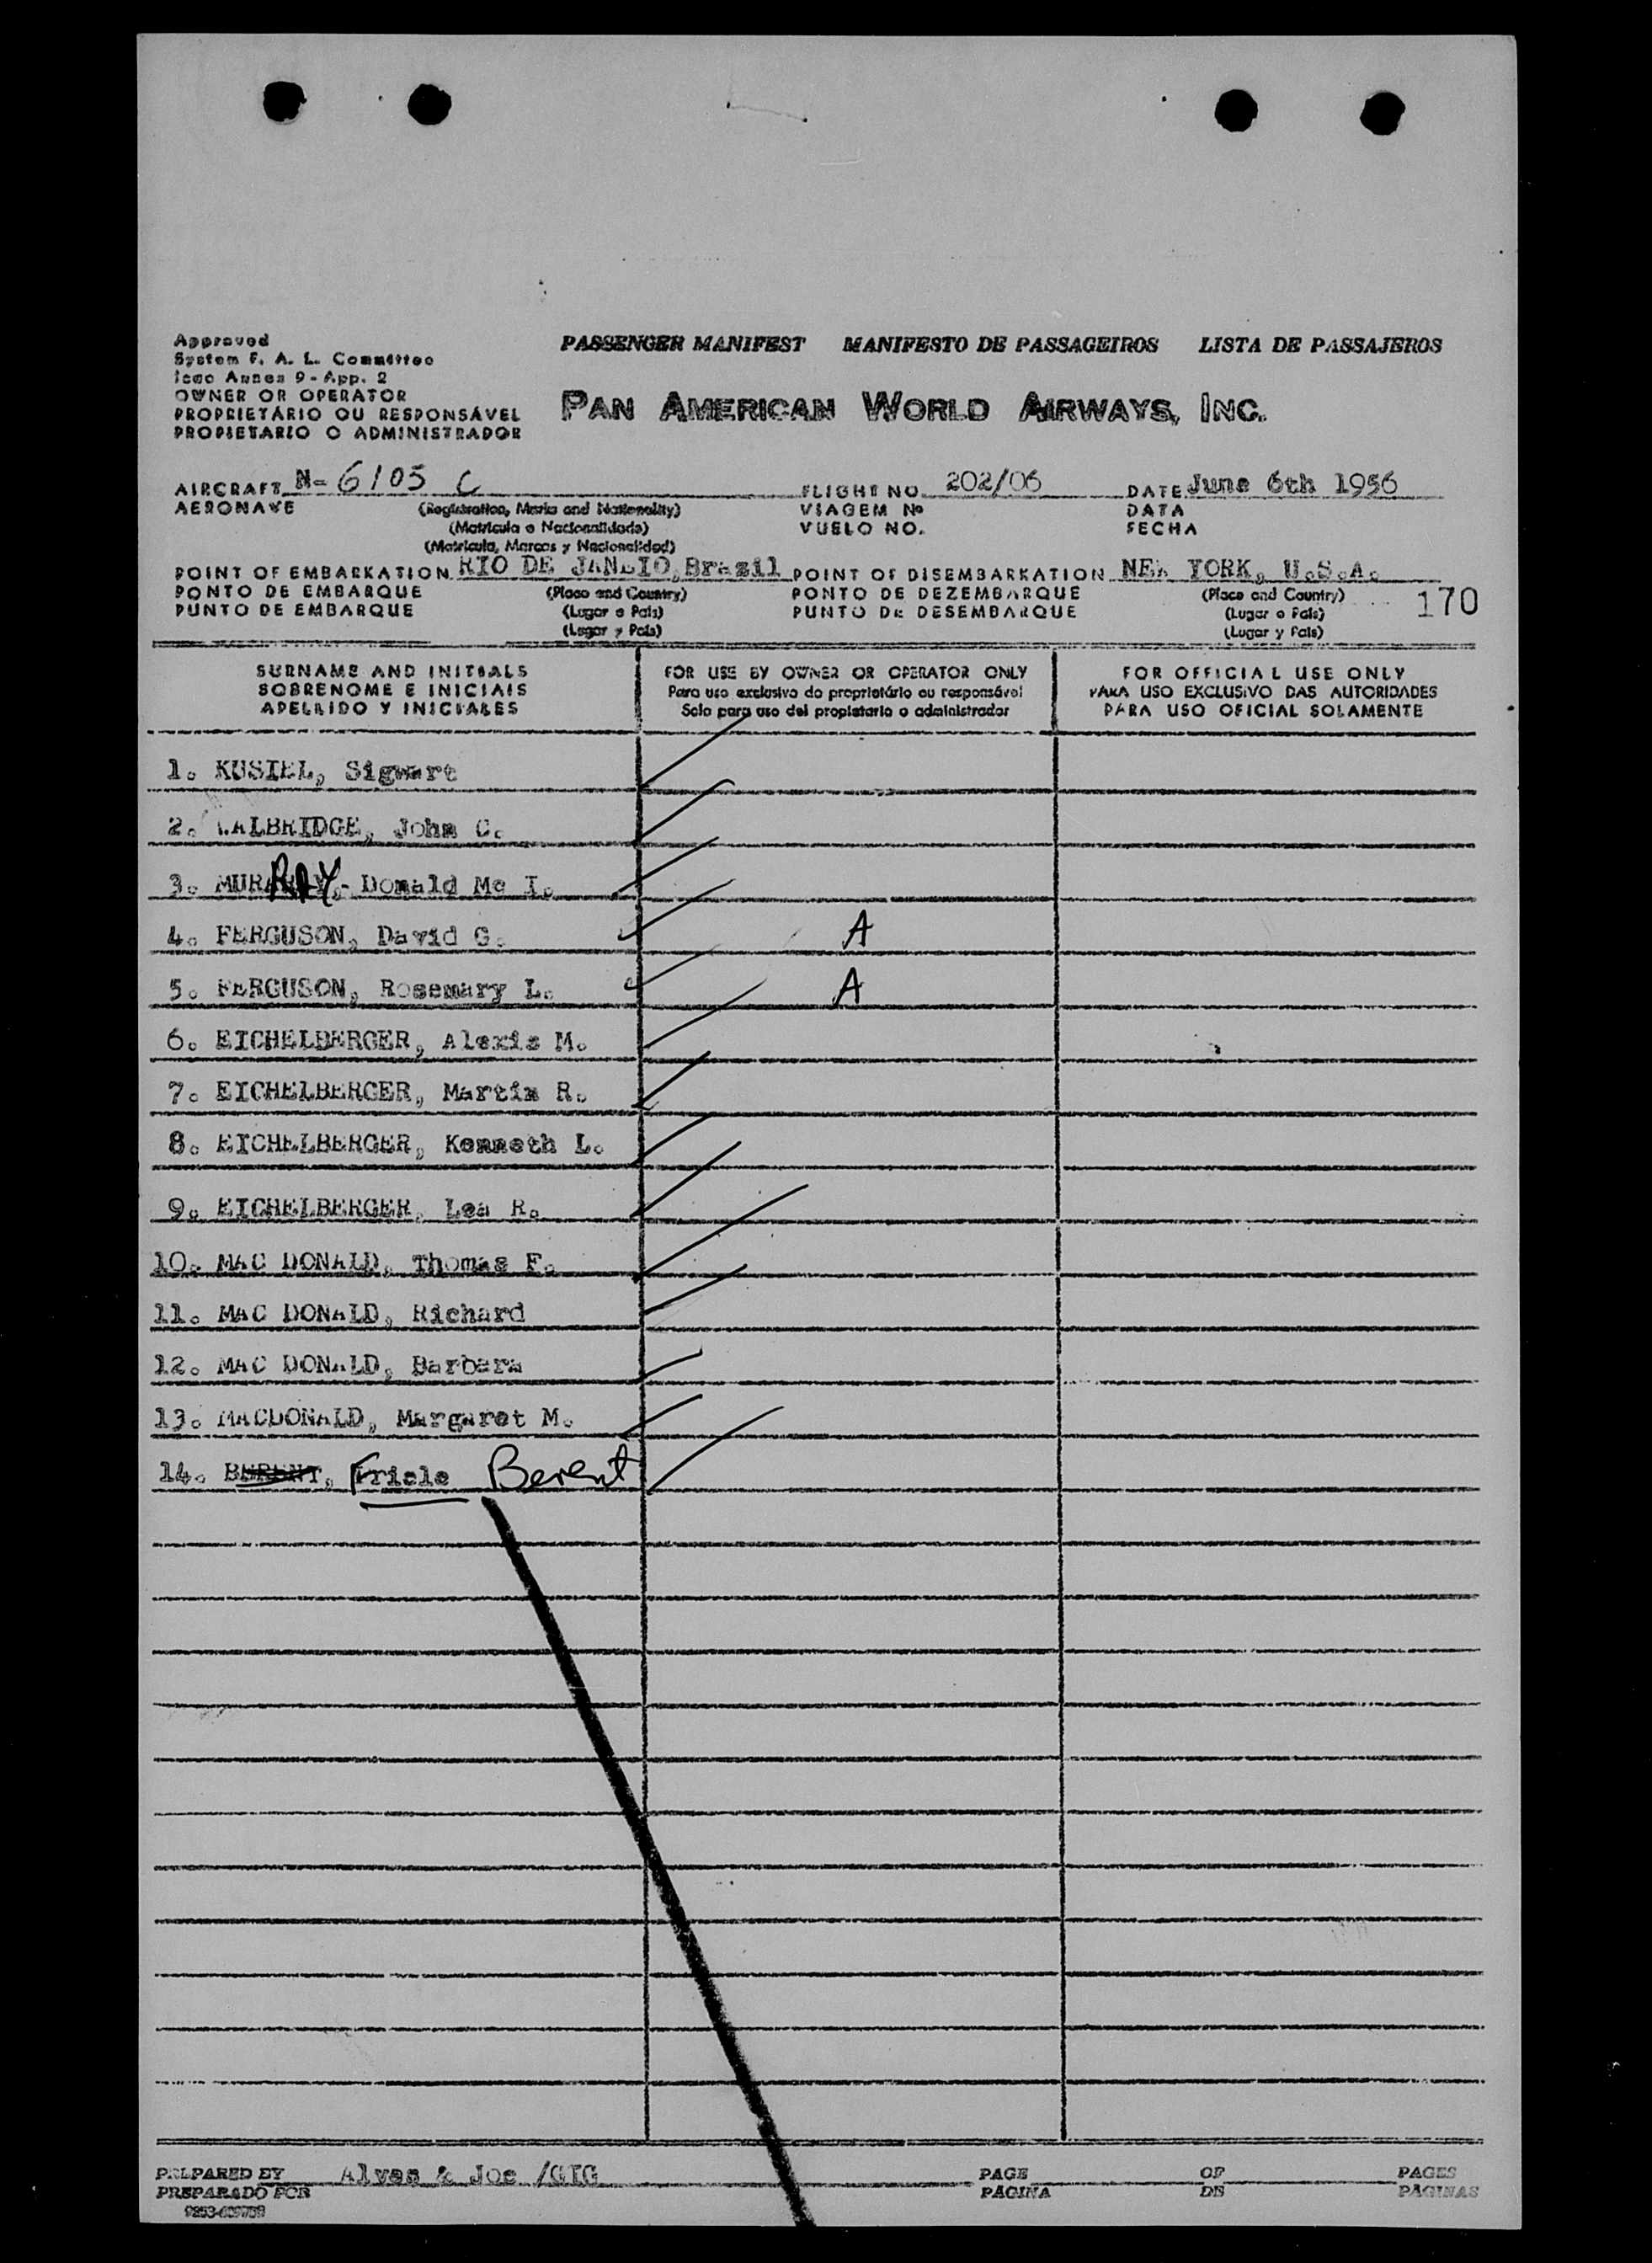 Approved
System F. A. L. Committee
Icao Annex 9 - App. 2
OWNER OR OPERATOR
PROPRIETÁRIO OU RESPONSÁVEL
PROPIETARIO O ADMINISTRADOR
PASSENGER MANIFEST MANIFESTO DE PASSAGEIROS LISTA DE PASSAJEROS
PAN AMERICAN WORLD AIRWAYS, INC.
AIRCRAFT N- 6105 C FLIGHT NO. 202/06 DATE June 6th 1956
AERONAVE (Registration, Marks and Nationality) VIAGEM Nº DATA
(Matrícula e Nacionalidade) VUELO NO. FECHA
(Matrícula, Marcas y Nacionalidad)
POINT OF EMBARKATION RIO DE JANEIO, Brazil POINT OF DISEMBARKATION NEW YORK, U.S.A.
PONTO DE EMBARQUE (Place and Country) PONTO DE DEZEMBARQUE (Place and Country) 170
PUNTO DE EMBARQUE (Lugar e País) PUNTO DE DESEMBARQUE (Lugar e País)
(Lugar y País) (Lugar y País)
SURNAME AND INITIALS FOR USE BY OWNER OR OPERATOR ONLY FOR OFFICIAL USE ONLY
SOBRENOME E INICIAIS Para uso exclusivo do proprietário ou responsável PARA USO EXCLUSIVO DAS AUTORIDADES
APELLIDO Y INICIALES Solo para uso del propietario o administrador PARA USO OFICIAL SOLAMENTE
1. KUSIEL, Sigwart
2. WALBRIDGE, John C.
3. MURRAY, - Donald Mc I.
4. FERGUSON, David G. A
5. FERGUSON, Rosemary L. A
6. EICHELBERGER, Alexis M.
7. EICHELBERGER, Martin R.
8. EICHELBERGER, Kenneth L.
9. EICHELBERGER, Lea R.
10. MAC DONALD, Thomas F.
11. MAC DONALD, Richard
12. MAC DONALD, Barbara
13. MACDONALD, Margaret M.
14. BERENT, Friele Berent
PREPARED BY Alves & Joe /GIG PAGE OF PAGES
PREPARADO POR PÁGINA DE PÁGINAS